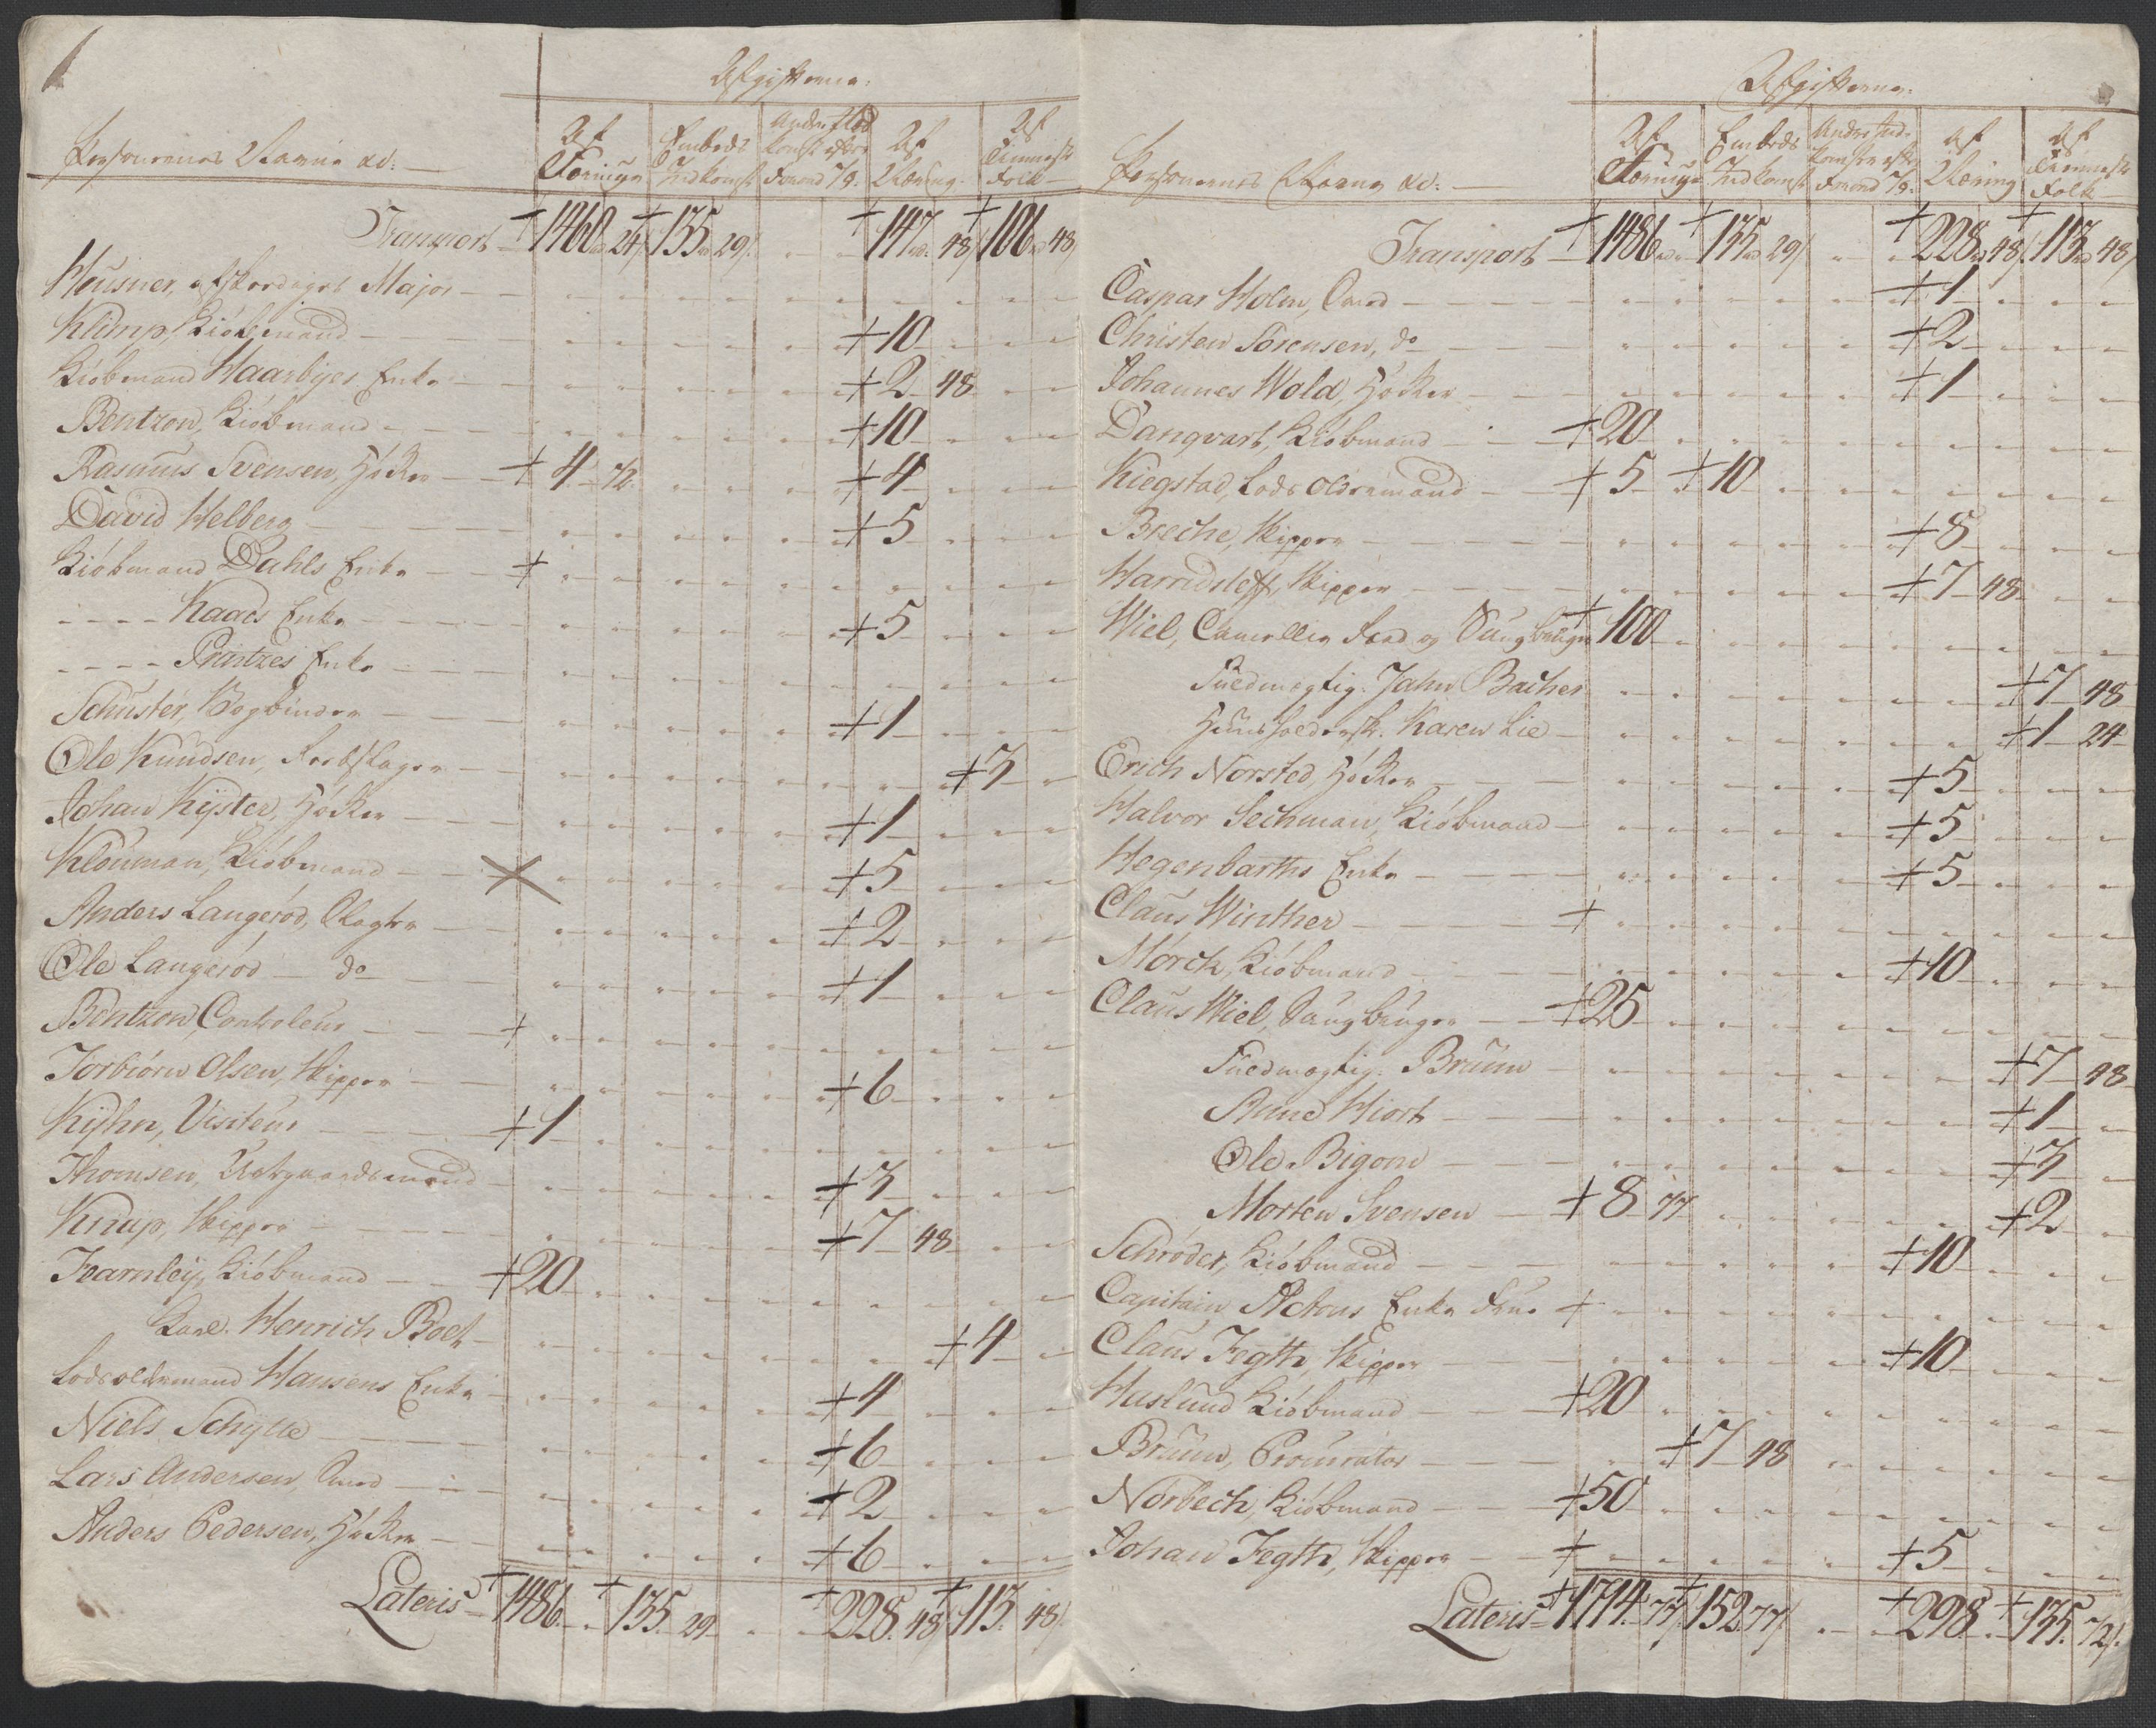 Afgifterne.
Personernes Navne &c: Af Formue Embeds Indkomst Anden Ind komst efter Forord 7/9. Af Næring. Af Tienneste Folk
Transport + 1460 24 + 135 29 - - + 147 48 + 106 48
Heusner, afskediget Major
Klump, Kiøbmand + 10
Kiøbmand Haarbyes Enke + 2 48
Bentzon, Kiøbmand + 10
Rasmus Svensen, Høker + 4 72 + 4
David Helberg + 5
Kiøbmand Dahls Enke +
- - - - Kaads Enke + 5
- - - - Enke
Schuster, Bogbinder + 1
Ole Knudsen + 3
Johan Kyster, Høker + 1
Klouman, Kiøbmand + 5
Anders Langerød, Slagter + 2
Ole Langerød - do + 1
Bentzon Controleur +
Torbiørn Olsen, Skipper + 6
Kyhn, Visiteur + 1
Thomsen + 3
Knup, Skipper + 7 48
Fearnley, Kiøbmand + 20
Karl. Henrich Boet + 4
Lodsoldermand Hansens Enke + 4
Niels Schytte + 6
Lars Andersen, Smed + 2
Anders Pedersen, Høker + 6
Lateris + 1486. - + 135. 29 - - + 228. 48 + 113. 48
Afgifterne.
Personernes Navne &c: Af Formue Embeds Indkomst Anden Ind komst efter Forord 7/9. Af Næring Af Tienneste Folk
Transport + 1486 - + 135 29 - - + 228 48 + 113 48
Caspar Holm, Smed + 1
Christen Sørensen, do + 2
Johannes Wold, Høker + 1
Danqvart, Kiøbmand + 20
Kiegstad, Lods Oldermand + 5 + 10
Breche, Skipper + 8
Harridsleff, Skipper + 7 48
Wiel, Cancellie Raad og Saugbruger + 100
Fuldmægtig. Jahn Bacher + 7 48
Huusholdersk. Karen Lie + 1 24
Erich Norsted, Høker + 5
Halvor Sechman, Kiøbmand + 5
Hegenbarths Enke + 5
Claus Winther +
Mørch, Kiøbmand + 10
Claus Wiel, Saugbruger + 25
Fuldmægtig. Bruun + 7 48
Anne Hiort + 1
Ole Bigom + 3
Morten Svensen + 8 77 + 2
Schrøder, Kiøbmand + 10
Capitain Actons Enke Frue +
Claus Fegth, Skipper + 10
Haslund Kiøbmand + 20
Bruun, Procurator + 7 48
Norbech, Kiøbmand + 50
Johan Fegth, Skipper + + 5
Lateris + 1714. 77 + 152 77 - - + 298. - + 135. 72